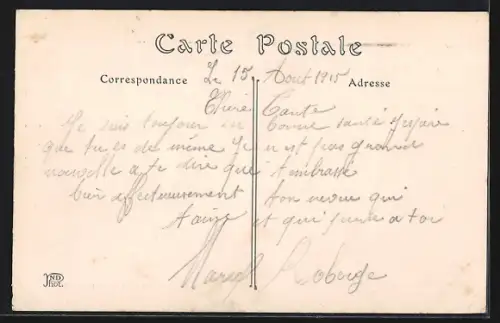 Carte Postale
Correspondance
Adresse
Le 15 Aout 1915
Chere Tante
Je suis toujour en bonne santé j'espaire
que tu es de même Je n'est pas grande
nouvelle a te dire que t'embrasse
bien affectueusement ton neveu qui
t'aime et qui pense a toi
Marcel
ND
PHOT.